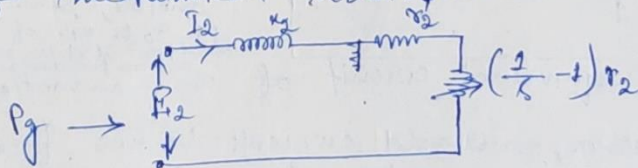 I2 x2 r2
(1/s - 1) r2
Pg → E2